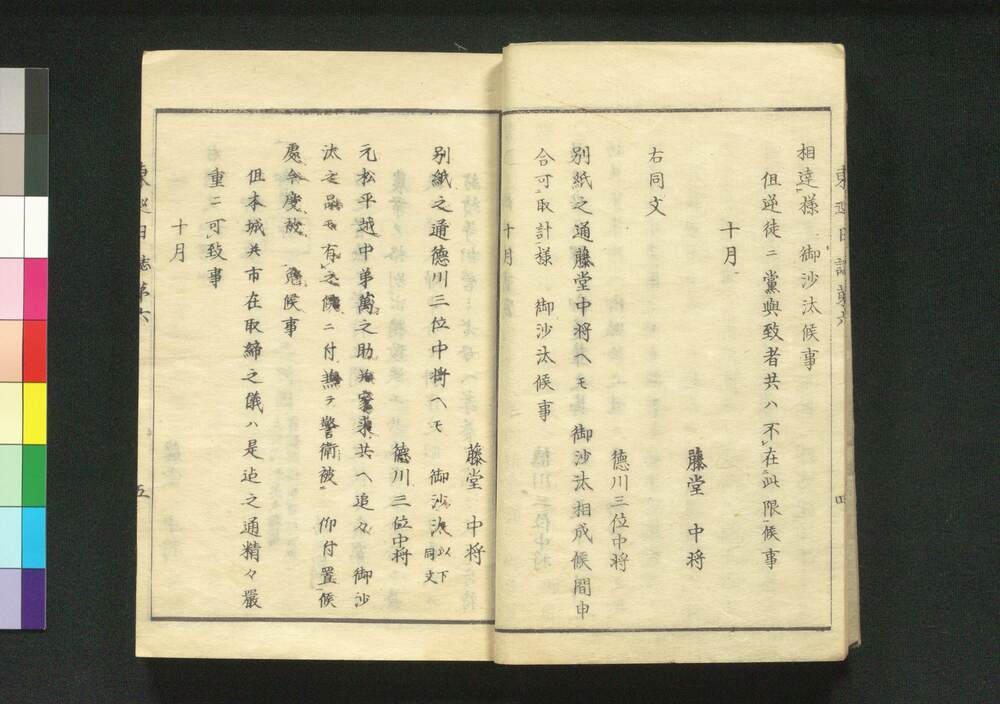 相違様 御沙汰候事
但逆徒ニ黨與致者共ハ不在此限候事
十月
藤堂 中将
右同文
徳川三位中将
別紙之通藤堂中将ヘモ 御沙汰相成候間申
合可取計様 御沙汰候事
十月
藤堂 中将
別紙之通徳川三位中将ヘモ 御沙汰以下同文
徳川三位中将
元松平越中弟萬之助并家来共ヘ追々 御沙
汰之品モ有之候ニ付兼テ警衛被 仰付置候
處今度被 免候事
但本城并市在取締之儀ハ是迄之通精々嚴
重ニ可致事
十月
東巡日誌第六
四
東巡日誌第六
五